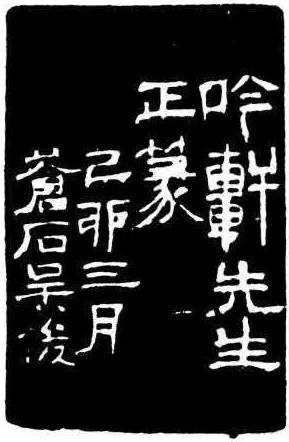 吟軒先生
正篆
己卯三月
蒼石吴俊